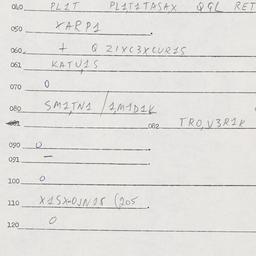 040 PL1T PL1T1TASAX QGL RET
050 XARP1
060 + Q Z1XC3XCUR1S
061 KATU1S
070 0
080 SM1TN1 / 1M1D1K
081 082 TRO V3R1K
090 0
091 —
100 0
110 X1SX0JN18 (205
120 0